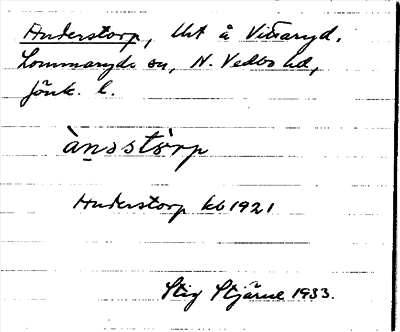 Anderstorp, Ut å Vibaryd,
Lommaryds sn, N. Vedbo hd,
Jönk. l.
ànsstòrp
Anderstorp kb 1921
Stig Stjärne 1933.